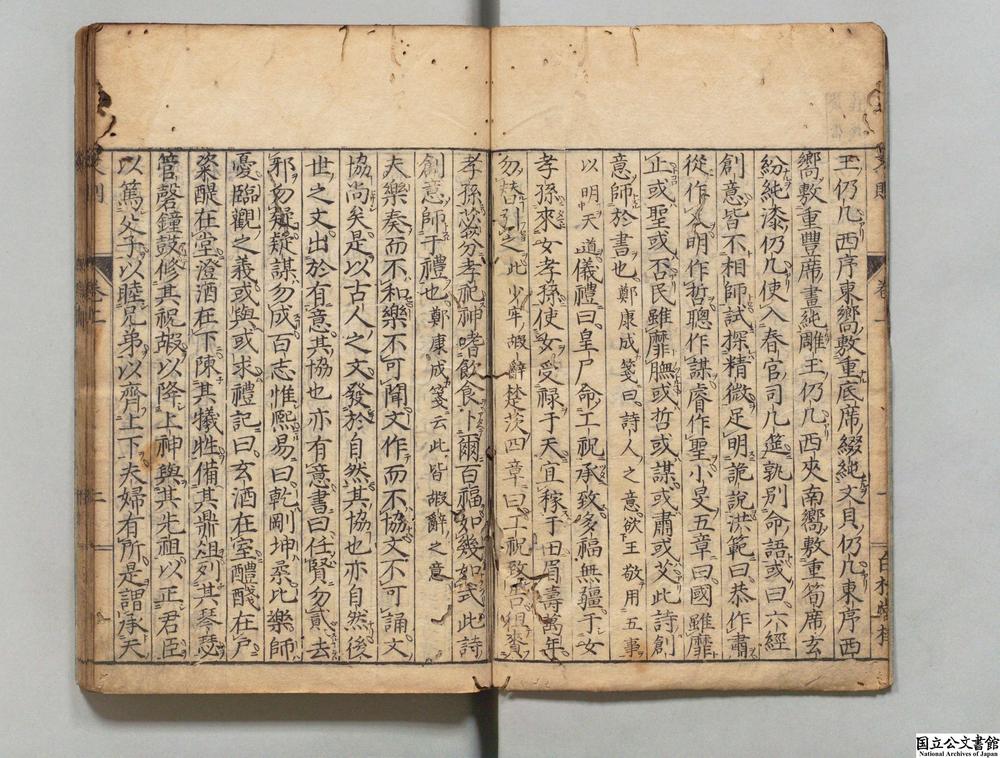 玉仍几西序東嚮敷重底席綴純文貝仍几東序西
嚮敷重豐席畫純雕玉仍几西夾南嚮敷重筍席玄
紛純漆仍几使入春官司几筵孰別命語或曰六經
創意皆不相師試探精微足明詭說洪範曰恭作肅
從作乂明作哲聰作謀睿作聖小旻五章曰國雖靡
止或聖或否民雖靡膴或哲或謀或肅或艾此詩創
意師於書也鄭康成箋曰詩人之意欲王敬用五事
以明天道儀禮曰皇尸命工祝承致多福無疆于女
孝孫來女孝孫使女受禄于天宜稼于田眉壽萬年
勿替引之此少牢嘏辭楚茨四章曰工祝致告徂賚
孝孫苾芬孝祀神嗜飲食卜爾百福如幾如式此詩
創意師于禮也鄭康成箋云此皆嘏辭之意
夫樂奏而不和樂不可聞文作而不協文不可誦文
協尚矣是以古人之文發於自然其協也亦自然後
世之文出於有意其協也亦有意書曰任賢勿貳去
邪勿疑疑謀勿成百志惟熙易曰乾剛坤柔比樂師
憂臨觀之義或與或求禮記曰玄酒在室醴醆在戶
粢醍在堂澄酒在下陳其犧牲備其鼎俎列其琴瑟
管磬鐘鼓修其祝嘏以降上神與其先祖以正君臣
以篤父子以睦兄弟以齊上下夫婦有所是謂承天
卷上
二
国立公文書館
National Archives of Japan